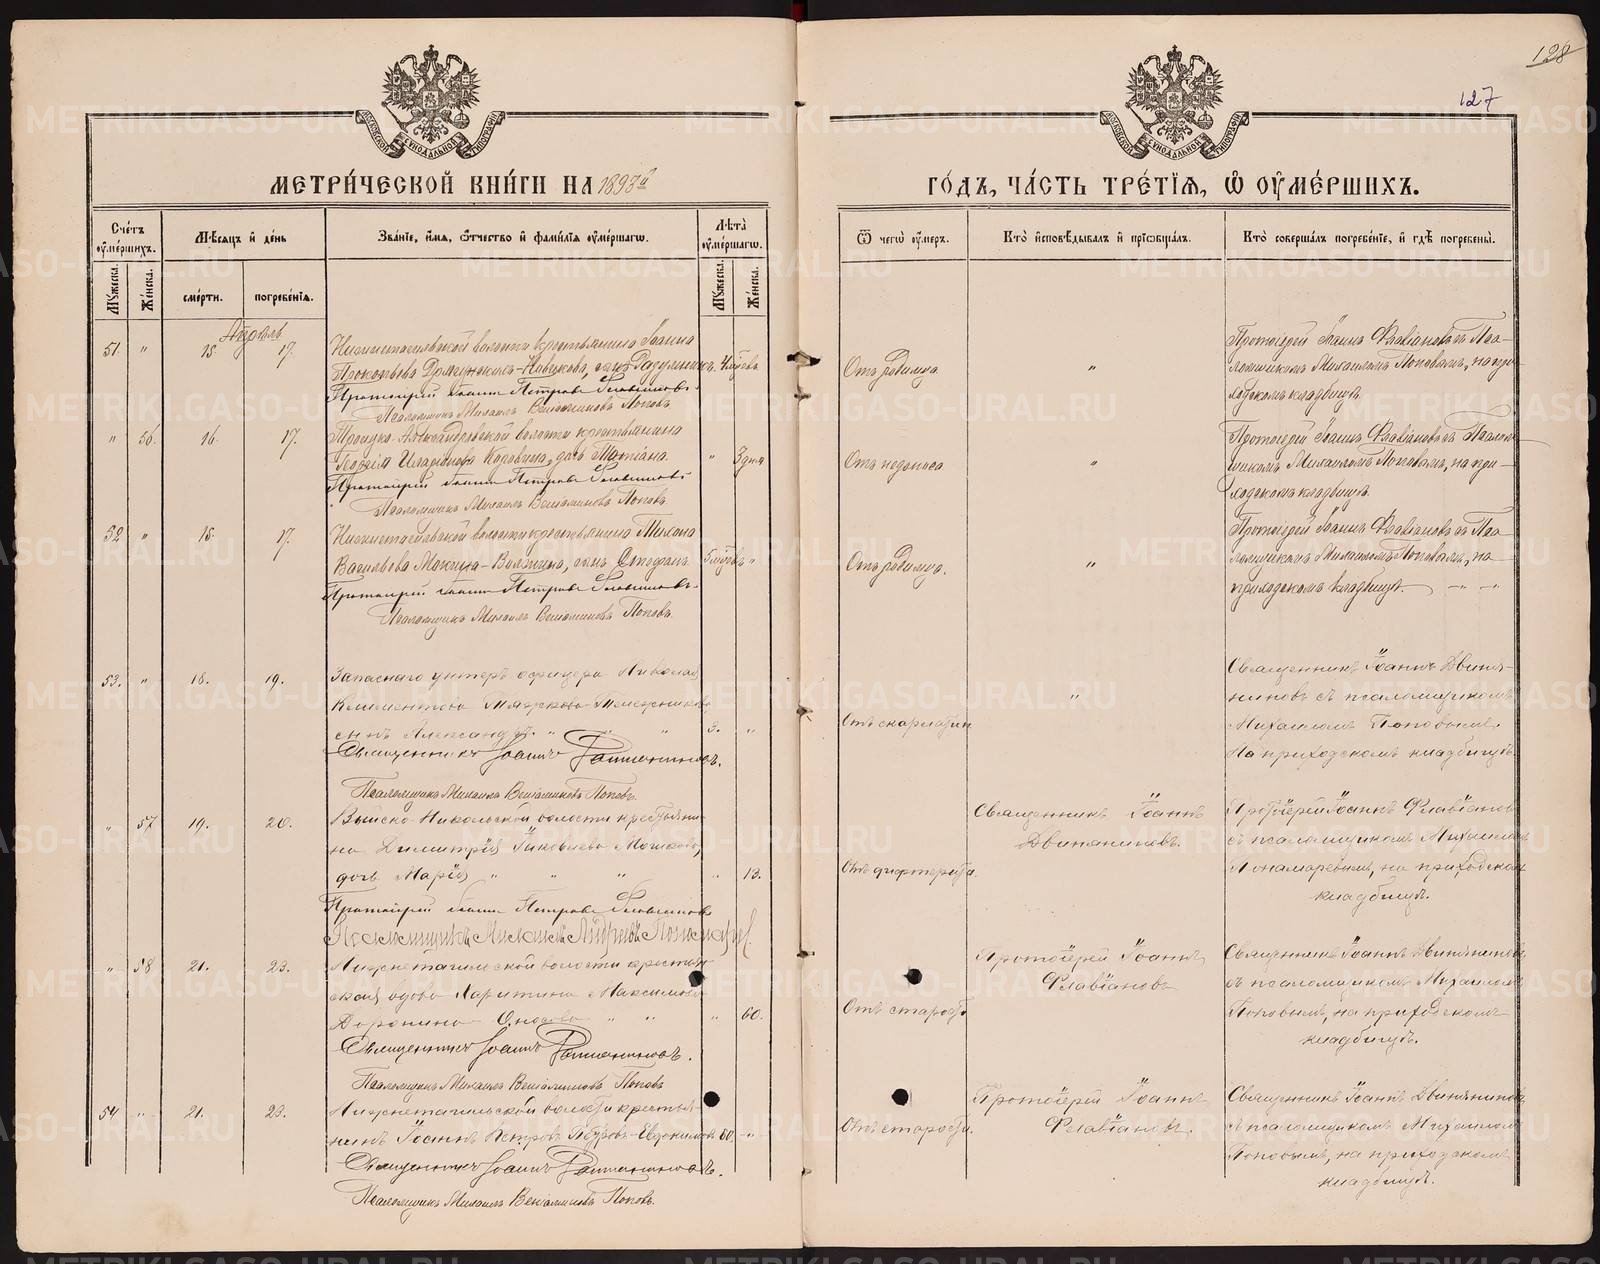 128
127
МЕТРИ́ЧЕСКОЙ КНИ́ГИ НА 1893й
ГО́ДЪ, ЧА́СТЬ ТРЕ́ТIѦ, Ѡ҆ ОУ҆МЕ́РШИХЪ.
Сче́тъ оу҆ме́ршихъ.
Мѣ́сяцъ и҆ де́нь
Зва́нїе, и҆́мѧ, ѻ҆́тчество и҆ фами́лїѧ оу҆ме́ршагѡ.
Лѣ́та оу҆ме́ршагѡ.
Ѿ чегѡ̀ оу҆́меръ.
Кто̀ и҆сповѣ́дывалъ и҆ прїѡбща́лъ.
Кто̀ соверша́лъ погребе́нїе, и҆ гдѣ̀ погребены̀.
Му́жеска.
Же́нска.
сме́рти.
погребе́нїѧ.
Му́жеска.
Же́нска.
Апрѣль
51. " 15. 17.
Нижнетагильской волости крестьянина Іоанна
Прокопьева
Протоіерей Іоаннъ Петровъ Флавіановъ
Псаломщикъ Михаилъ Веніаминовъ Поповъ
Отъ родимца
"
Протоіерей Іоаннъ Флавіановъ съ Пса-
ломщикомъ Михаиломъ Поповымъ, на при-
ходскомъ кладбищѣ
" 56. 16. 17.
Троицко-Александровской волости крестьянина
Георгія Иларіонова дочь Татіана " 3 дня
Протоіерей Іоаннъ Петровъ Флавіановъ
Псаломщикъ Михаилъ Веніаминовъ Поповъ
Отъ недоноса
"
Протоіерей Іоаннъ Флавіановъ съ Псалом-
щикомъ Михаиломъ Поповымъ, на при-
ходскомъ кладбищѣ
52 " 15. 17.
Нижнетагильской волости крестьянина
Васильева сынъ Стефанъ
Протоіерей Іоаннъ Петровъ Флавіановъ
Псаломщикъ Михаилъ Веніаминовъ Поповъ
Отъ родимца.
"
Протоіерей Іоаннъ Флавіановъ съ Пса-
ломщикомъ Михаиломъ Поповымъ, на
приходскомъ кладбищѣ. — " — "
53. " 18. 19.
Запаснаго унтеръ офицера Николая
Климентова
сынъ Александръ " " " 3. "
Священникъ Іоаннъ
Псаломщикъ Михаилъ Веніаминовъ Поповъ.
Отъ скарлатин
"
Священникъ Іоаннъ Двиня-
ниновъ съ псаломщикомъ
Михаиломъ Поповымъ
На приходскомъ кладбищѣ
" 57 19. 20.
Выйско-Никольской волости крестьяни-
на Димитрія Іаковлева
дочь Марія " " " " 13.
Протоіерей Іоаннъ Петровъ Флавіановъ
Псаломщикъ Михаилъ
Отъ дифтерита
Священникъ Іоаннъ
Двиняниновъ.
Протоіерей Іоаннъ Флавіановъ
съ псаломщикомъ Михаиломъ
Пономаревымъ, на приходском
кладбищѣ.
" 58 21. 23.
Нижнетагильской волости крестьян-
ская вдова Харитина Максимова
Доронина " " " 60.
Священникъ Іоаннъ
Псаломщикъ Михаилъ Веніаминовъ Поповъ
Отъ старости
Протоіерей Іоаннъ
Флавіановъ
Священникъ Іоаннъ Двиняниновъ
съ псаломщикомъ Михаиломъ
Поповымъ, на приходскомъ
кладбищѣ.
54 " 21. 23.
Нижнетагильской волости крестья-
нинъ Іоаннъ Петровъ 80. "
Священникъ Іоаннъ
Псаломщикъ Михаилъ Веніаминовъ Поповъ.
Отъ старости.
Протоіерей Іоаннъ
Флавіановъ.
Священникъ Іоаннъ Двиняниновъ
съ псаломщикомъ Михаиломъ
Поповымъ, на приходскомъ
кладбищѣ.
METRIKI.GASO-URAL.RU